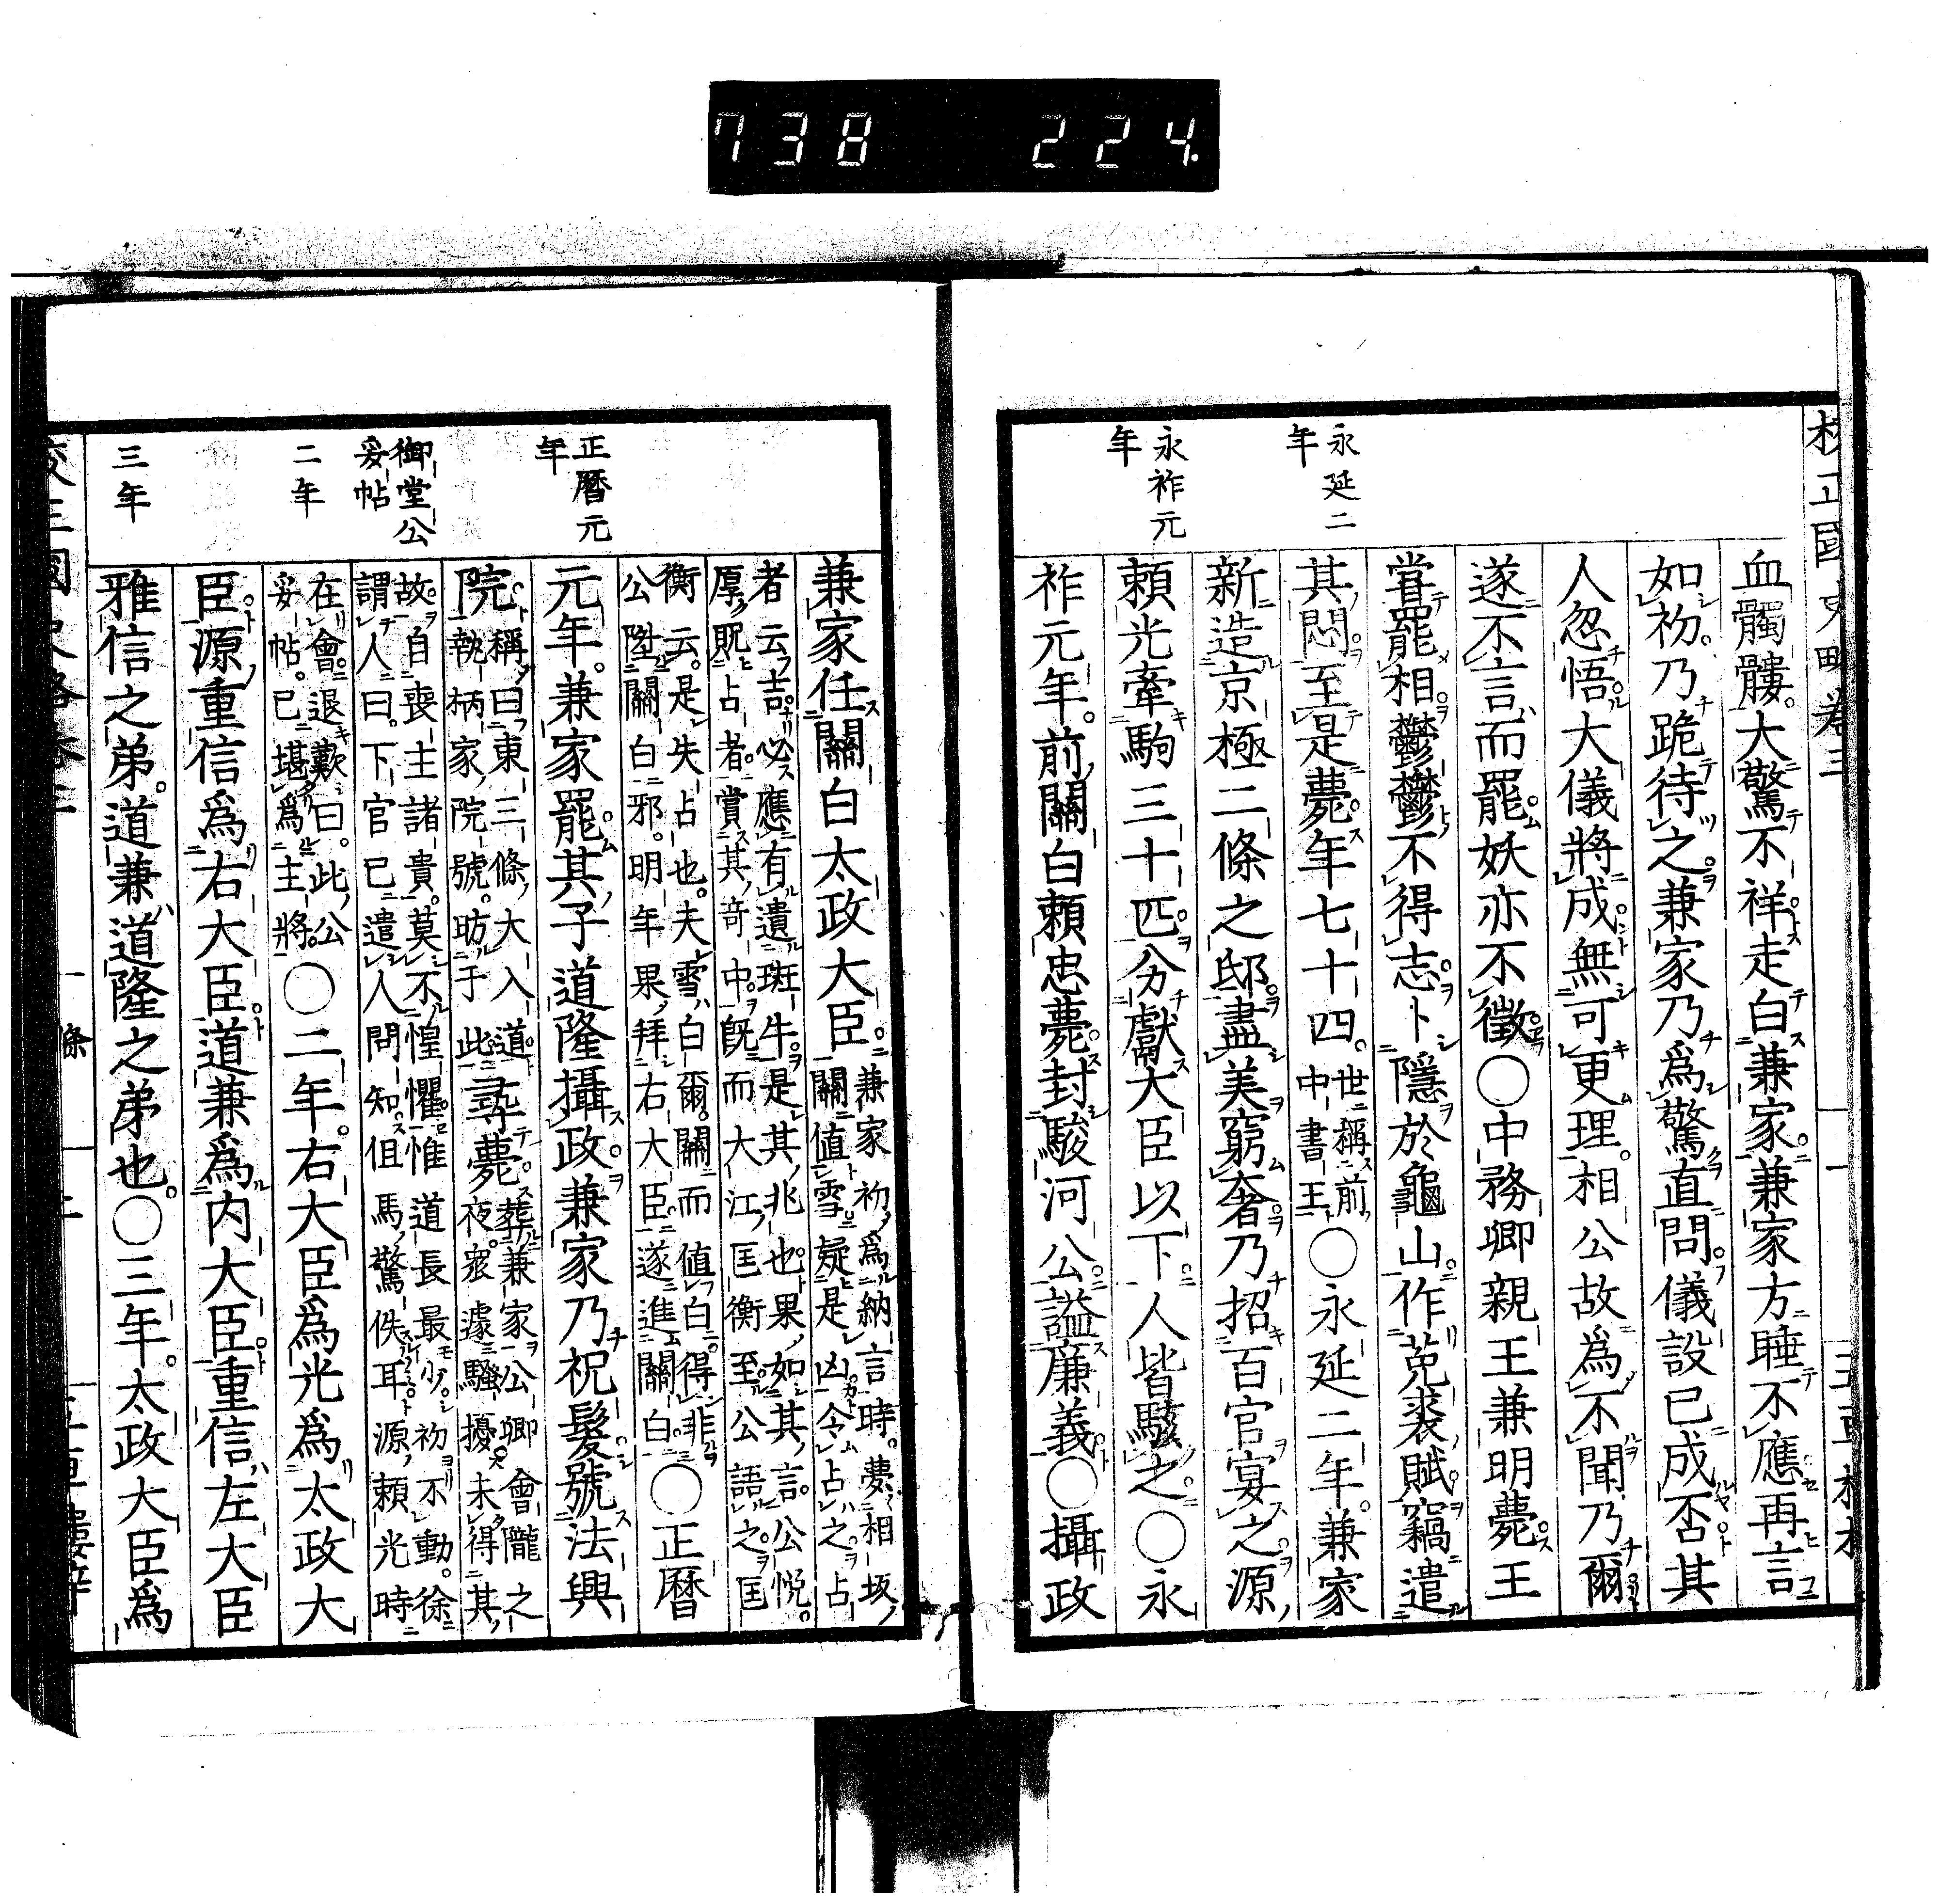 738 224.
校正國史略卷三
永延二年
永祚元年
血髑髏大驚不祥走白兼家兼家方睡不應再言
如初乃跪待之兼家乃爲驚直問儀設已成否其
人忽悟大儀將成無可更理相公故爲不聞乃爾
遂不言而罷妖亦不徵〇中務卿親王兼明薨王
甞罷相鬱鬱不得志卜隱於龜山作莵裘賦竊遣
其悶至是薨年七十四世稱前中書王〇永延二年兼家
新造京極二條之邸盡美窮奢乃招百官宴之源
頼光牽駒三十匹分獻大臣以下人皆駭之〇永
祚元年前關白頼忠薨封駿河公謚廉義〇攝政
正曆元年
御堂公妥帖
二年
三年
兼家任關白太政大臣兼家初爲納言時夢相坂
關値雪疑是凶令占之占
者云吉必應有遺斑牛是其兆也果如其言公悦
厚貺占者賞其奇中既而大江匡衡至公語之匡
衡云是失占也夫雪白爾關而値白得非
公陞關白邪明年果拜右大臣遂進關白〇正曆
元年兼家罷其子道隆攝政兼家乃祝髮號法興
院稱曰東三條大入道
執柄家院號昉于此尋薨葬兼家公卿會隴之
夜衆遽騷擾未得其
故自喪主諸貴莫不惶懼惟道長最少初不動徐
謂人曰下官已遣人問知但馬驚佚耳源頼光時
在會退歎曰此公
妥帖已堪爲主將〇二年右大臣爲光爲太政大
臣源重信爲右大臣道兼爲内大臣重信左大臣
雅信之弟道兼道隆之弟也〇三年太政大臣爲